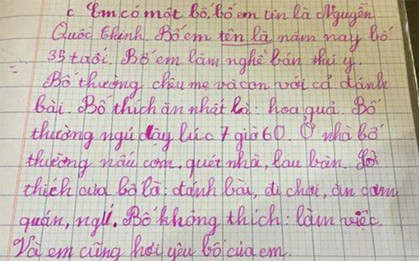 c Em có một bố, bố em tên là Nguyễn
Quốc Khanh. Bố em tên là năm nay bố
35 tuổi. Bố em làm nghề bán thú y.
Bố thường chiều mẹ và con với cả đánh
bài. Bố thích ăn nhất là: hoa quả. Bố
thường ngủ dậy lúc 7 giờ 60. Ở nhà bố
thường nấu cơm, quét nhà, lau bàn. Sở
thích của bố là: đánh bài, đi chơi, ăn cơm
quán, ngủ. Bố không thích: làm việc.
Và em cũng hơi yêu bố của em.